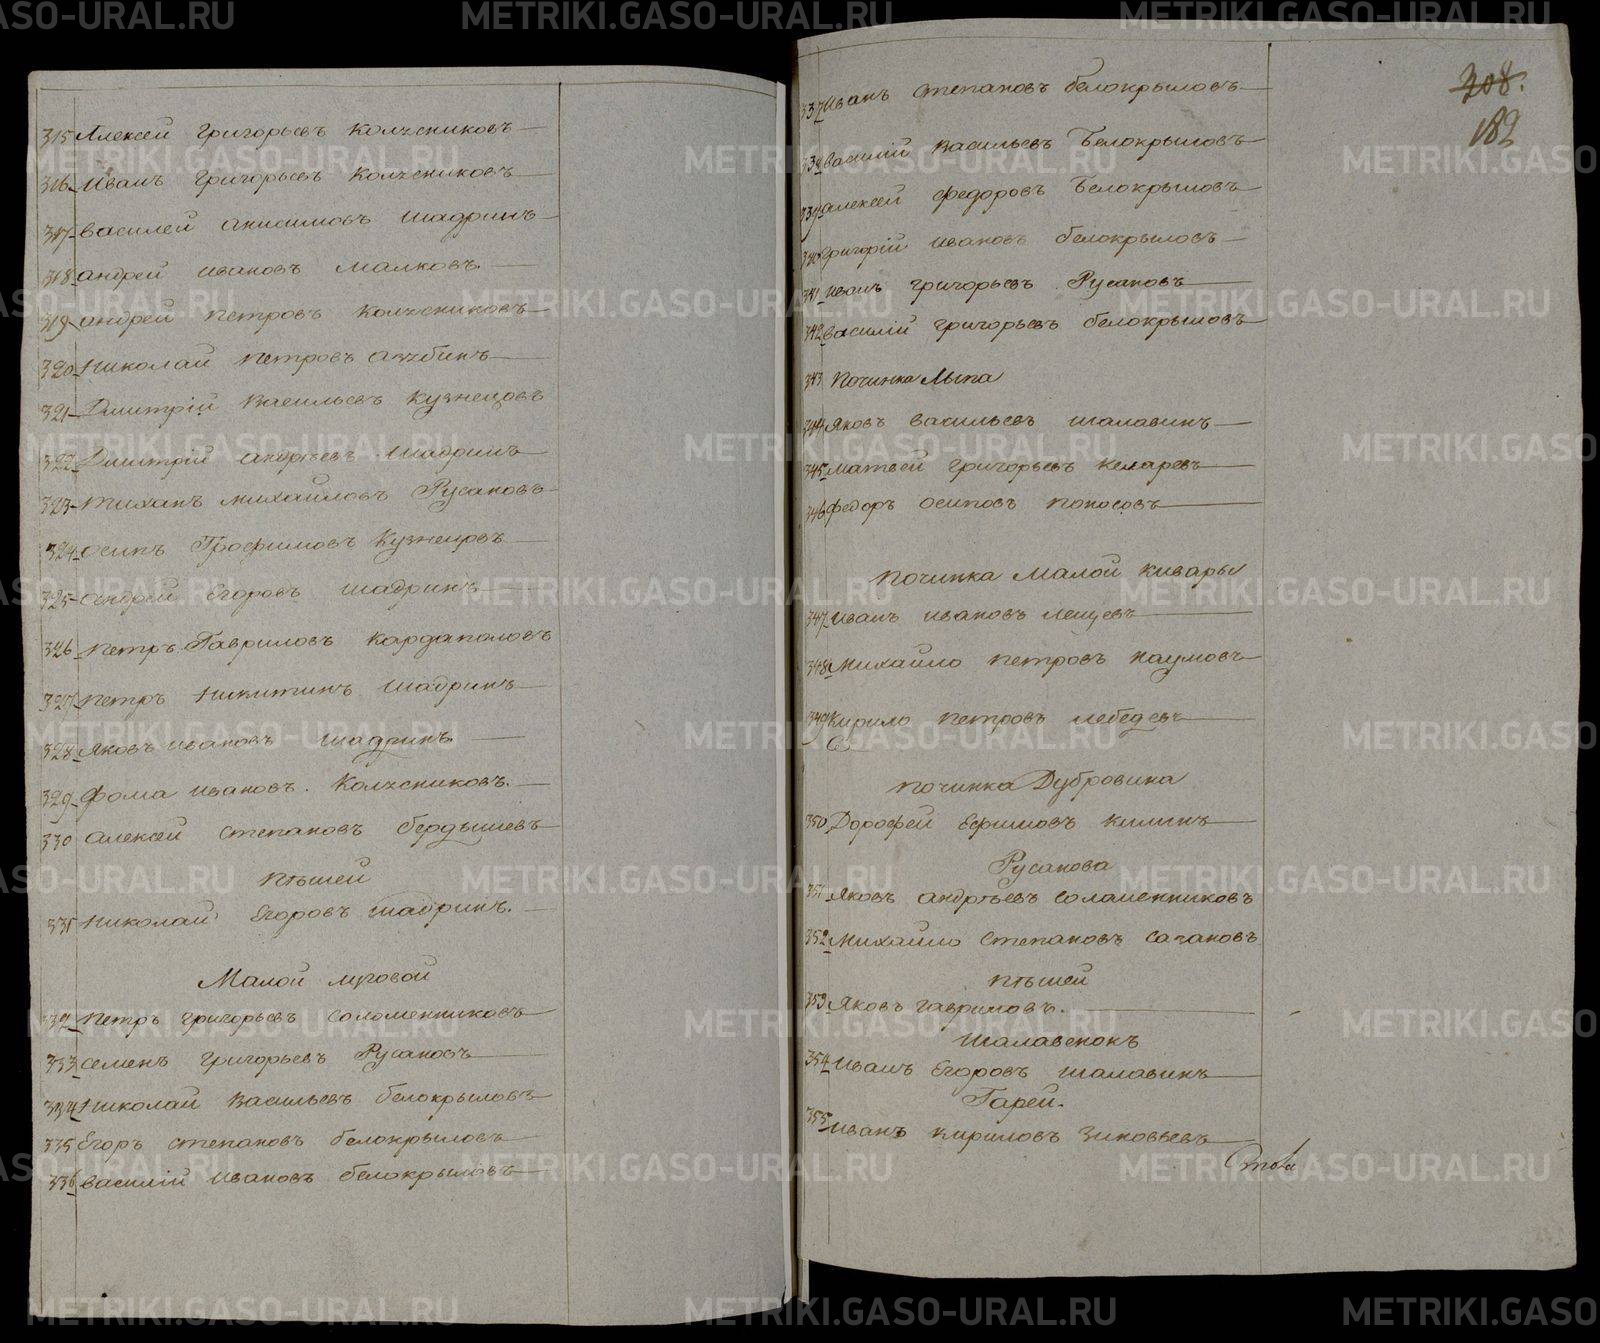 315 Алексей Григорьевъ Колчсниковъ
316 Иванъ Григорьевъ Колчсниковъ
317 Василей Анисимовъ Шадринъ
318 Андрей Ивановъ Малковъ
319 Андрей Петровъ Колчсниковъ
320 Николай Петровъ
321 Дмитрій Васильевъ Кузнецовъ
322 Дмитрій Андреевъ Шадринъ
323 Тиханъ Михайловъ Русановъ
324 Осипъ Трофимовъ Кузнецовъ
325 Андрей Егоровъ Шадринъ
326 Петръ Гавриловъ Кардаполовъ
327 Петръ Никитинъ Шадринъ
328 Яковъ Ивановъ Шадринъ
329 Фома Ивановъ. Колчсниковъ.
330 Алексей Степановъ Бердышевъ
Пѣшей
331 Николай Егоровъ Шадринъ.
Малой Луговой
332 Петръ Григорьевъ Соломенниковъ
333 Семенъ Григорьевъ Русановъ
334 Николай Васильевъ Белокрыловъ
335 Егоръ Степановъ Белокрыловъ
336 Василій Ивановъ Белокрыловъ
308.
182
337 Иванъ Степановъ Белокрыловъ
338 Василій Васильевъ Белокрыловъ
339 Алексей Федоровъ Белокрыловъ
340 Григорій Ивановъ Белокрыловъ
341 Иванъ Григорьевъ Русановъ
342 Василій Григорьевъ Белокрыловъ
343 Починка Лыпа
344 Яковъ Васильевъ Шалавинъ
345 Матвей Григорьевъ Келаревъ
346 Федоръ Осиповъ Поносовъ
Починка Малой Кивары
347 Иванъ Ивановъ Лещевъ
348 Михайло Петровъ Наумовъ
349 Кирило Петровъ Лебедевъ
Починка Дубровина
350 Дорофей Ефимовъ Килинъ
Русанова
351 Яковъ Андрѣевъ Соламенниковъ
352 Михайло Степановъ Сачановъ
Пѣшей
353 Яковъ Гавриловъ.
Шалавенокъ
354 Иванъ Егоровъ Шалавинъ
Гарей.
355 Иванъ Кириловъ Зиновьевъ
METRIKI.GASO-URAL.RU